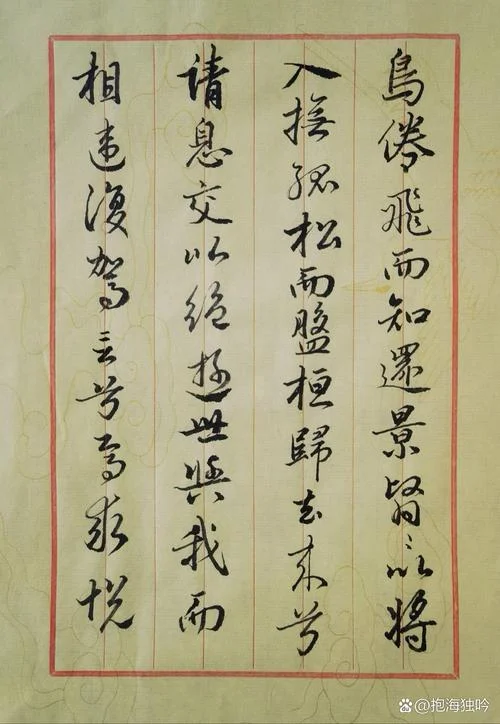 鳥倦飛而知還景翳以將
入撫孤松而盤桓歸去来兮
請息交以絕遊世與我而
相违復駕言兮焉求悅
@抱海独吟